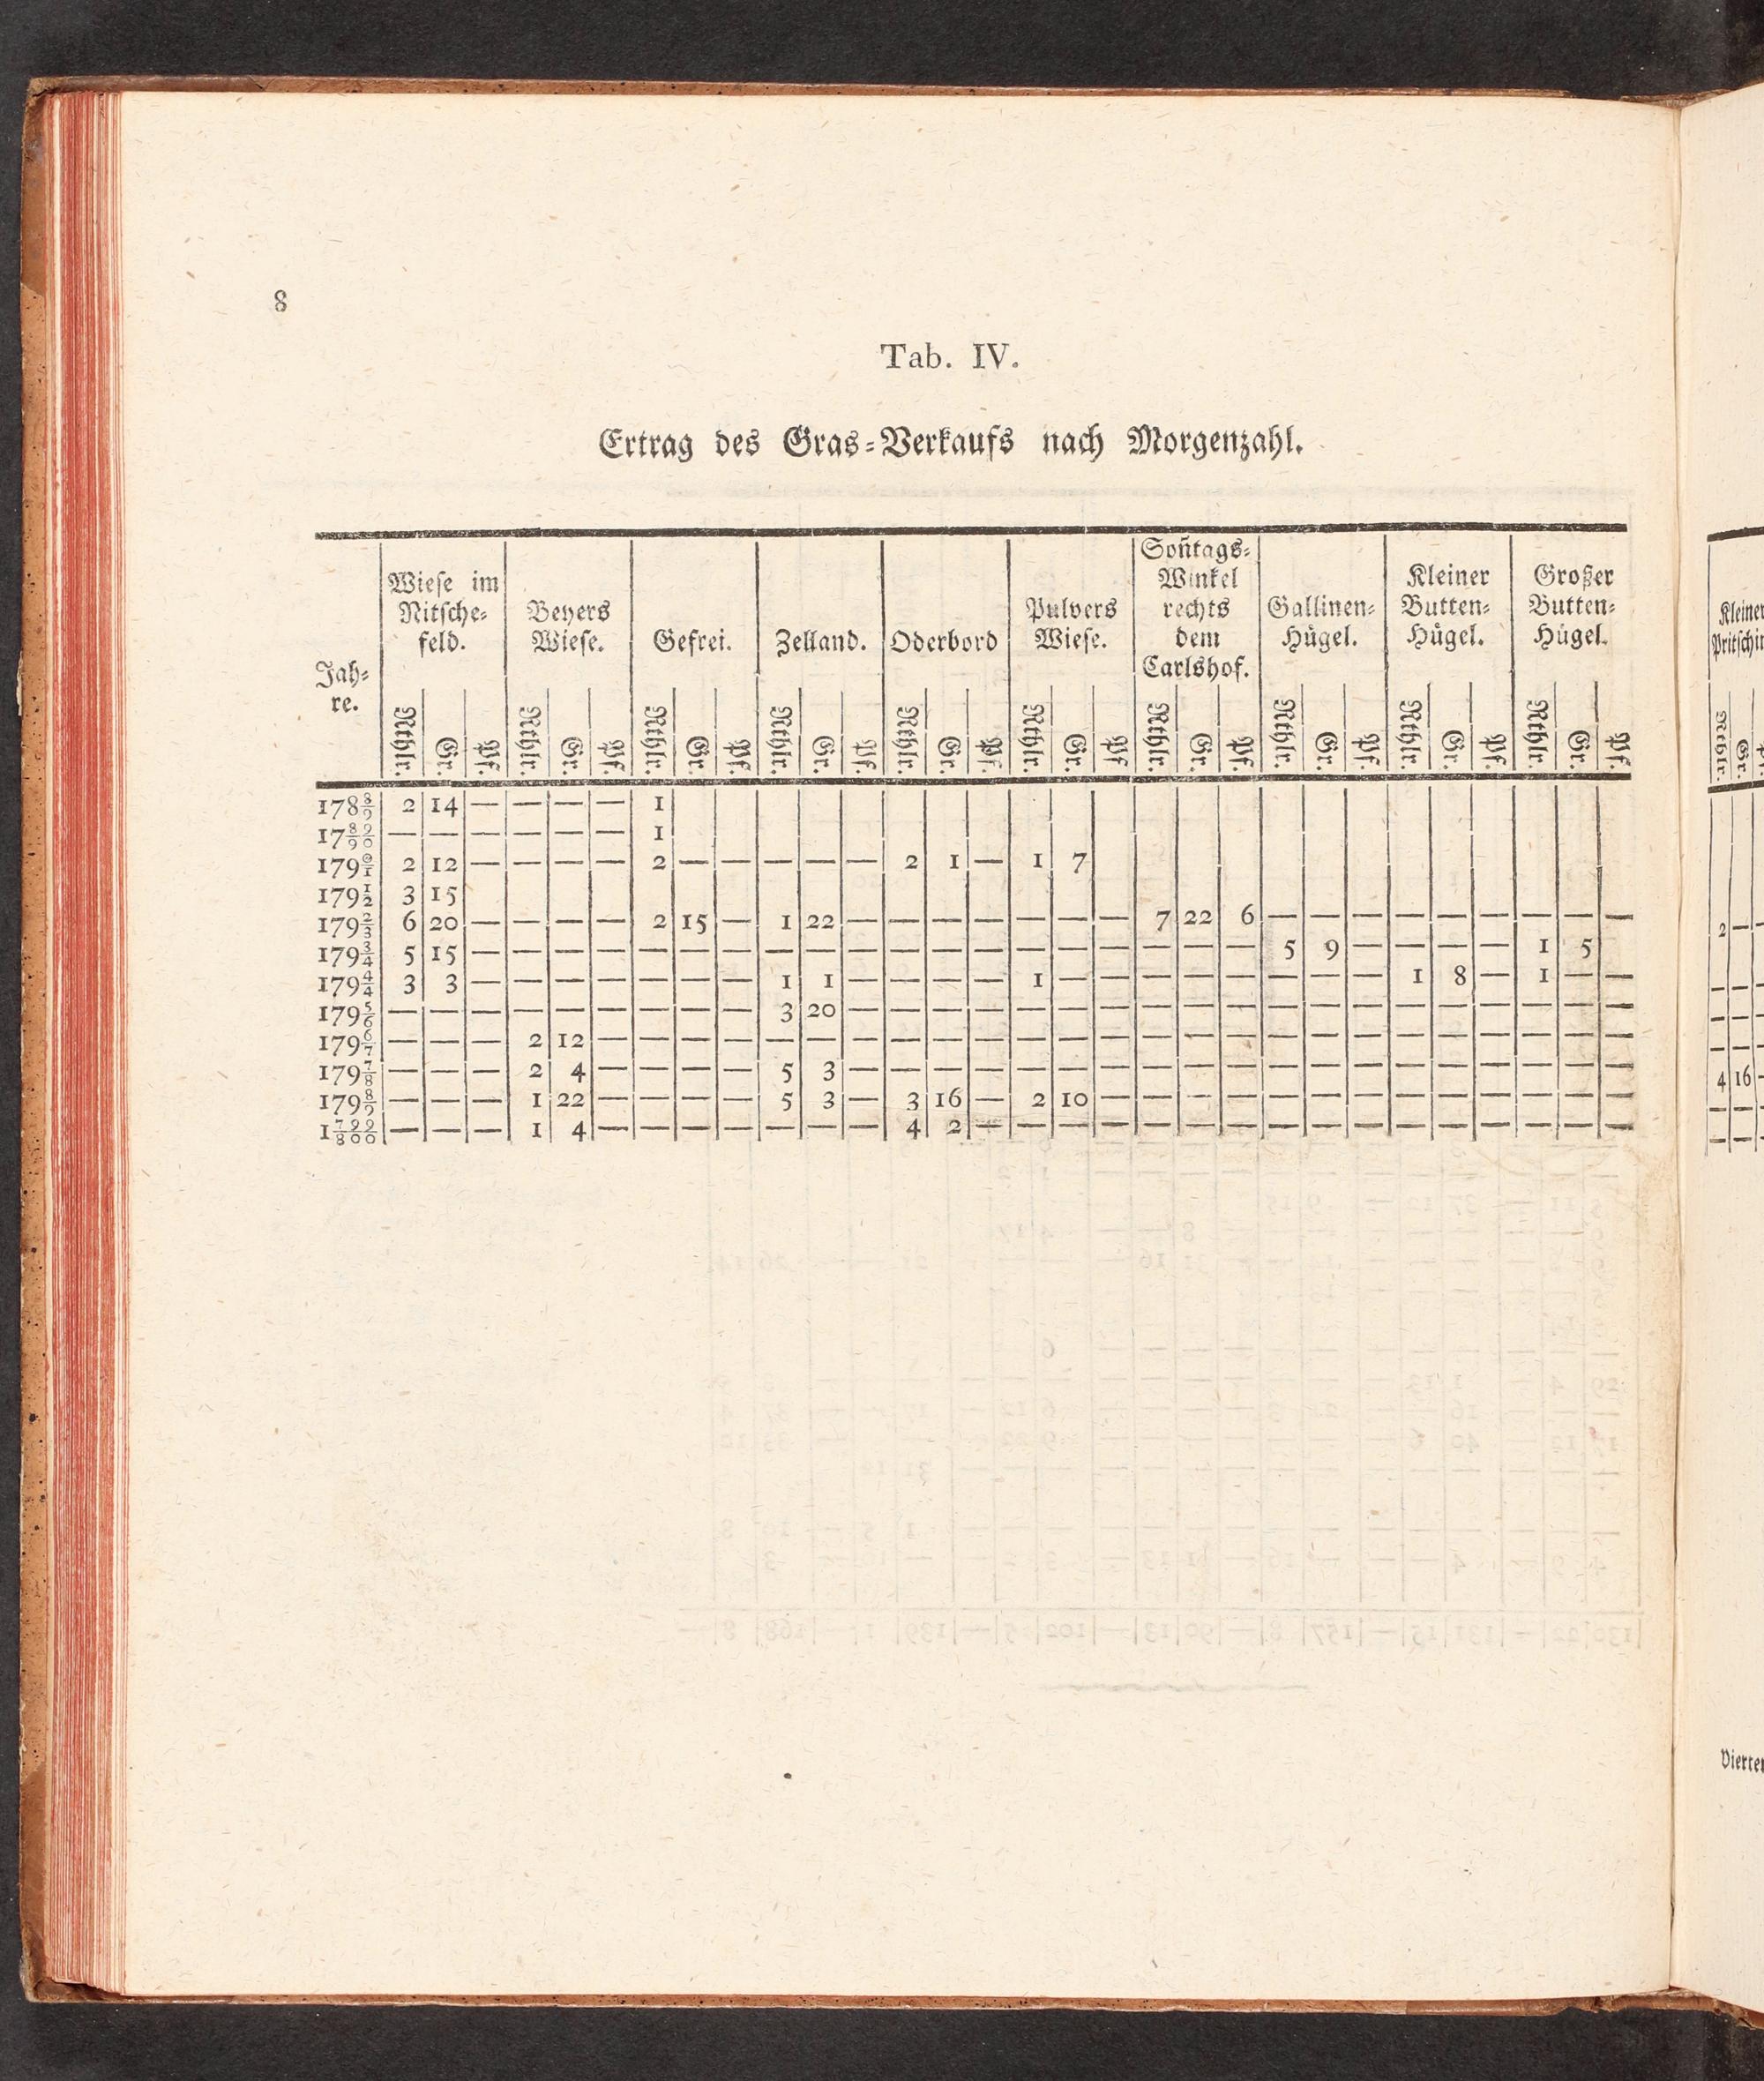 8
Tab. IV.
Ertrag des Gras-Verkaufs nach Morgenzahl.
Jahre. | Wiese im Nitschefeld. | Beyers Wiese. | Gefrei. | Zelland. | Oderbord | Pulvers Wiese. | Soñtags-Winkel rechts dem Carlshof. | Gallinen-Hügel. | Kleiner Butten-Hügel. | Großer Butten-Hügel.
Rthlr. | Gr. | Pf. | Rthlr. | Gr. | Pf. | Rthlr. | Gr. | Pf. | Rthlr. | Gr. | Pf. | Rthlr. | Gr. | Pf. | Rthlr. | Gr. | Pf | Rthlr. | Gr. | Pf. | Rthlr. | Gr. | Pf. | Rthlr. | Gr. | Pf. | Rthlr. | Gr. | Pf.
178 8/9 | 2 | 14 | — | — | — | — | 1
17 89/90 | — | — | — | — | — | — | 1
179 0/1 | 2 | 12 | — | — | — | — | 2 | — | — | — | — | — | 2 | 1 | — | 1 | 7
179 1/2 | 3 | 15
179 2/3 | 6 | 20 | — | — | — | — | 2 | 15 | — | 1 | 22 | — | — | — | — | — | — | — | 7 | 22 | 6 | — | — | — | — | — | — | — | — | —
179 3/4 | 5 | 15 | — | — | — | — | — | — | — | — | — | — | — | — | — | — | — | — | — | — | — | 5 | 9 | — | — | — | — | 1 | 5
179 4/4 | 3 | 3 | — | — | — | — | — | — | — | 1 | 1 | — | — | — | — | 1 | — | — | — | — | — | — | — | — | 1 | 8 | — | 1 | — | —
179 5/6 | — | — | — | — | — | — | — | — | — | 3 | 20 | — | — | — | — | — | — | — | — | — | — | — | — | — | — | — | — | — | — | —
179 6/7 | — | — | — | 2 | 12 | — | — | — | — | — | — | — | — | — | — | — | — | — | — | — | — | — | — | — | — | — | — | — | — | —
179 7/8 | — | — | — | 2 | 4 | — | — | — | — | 5 | 3 | — | — | — | — | — | — | — | — | — | — | — | — | — | — | — | — | — | — | —
179 8/9 | — | — | — | 1 | 22 | — | — | — | — | 5 | 3 | — | 3 | 16 | — | 2 | 10 | — | — | — | — | — | — | — | — | — | — | — | — | —
1 799/800 | — | — | — | 1 | 4 | — | — | — | — | — | — | — | 4 | 2 | — | — | — | — | — | — | — | — | — | — | — | — | — | — | — | —
Kleiner
Rthlr.
Gr.
2 | —
4 | 16